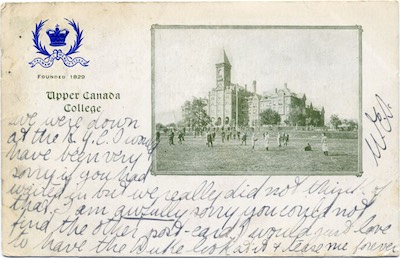 Founded 1829
Upper Canada
College
we were down
at the K.Y.C. I would
have been very
sorry if you had
waited in but we really did not think of
that. I am awfully sorry you could not
find the other post-card. I would just love
to have the Duke look at it & tease me forever